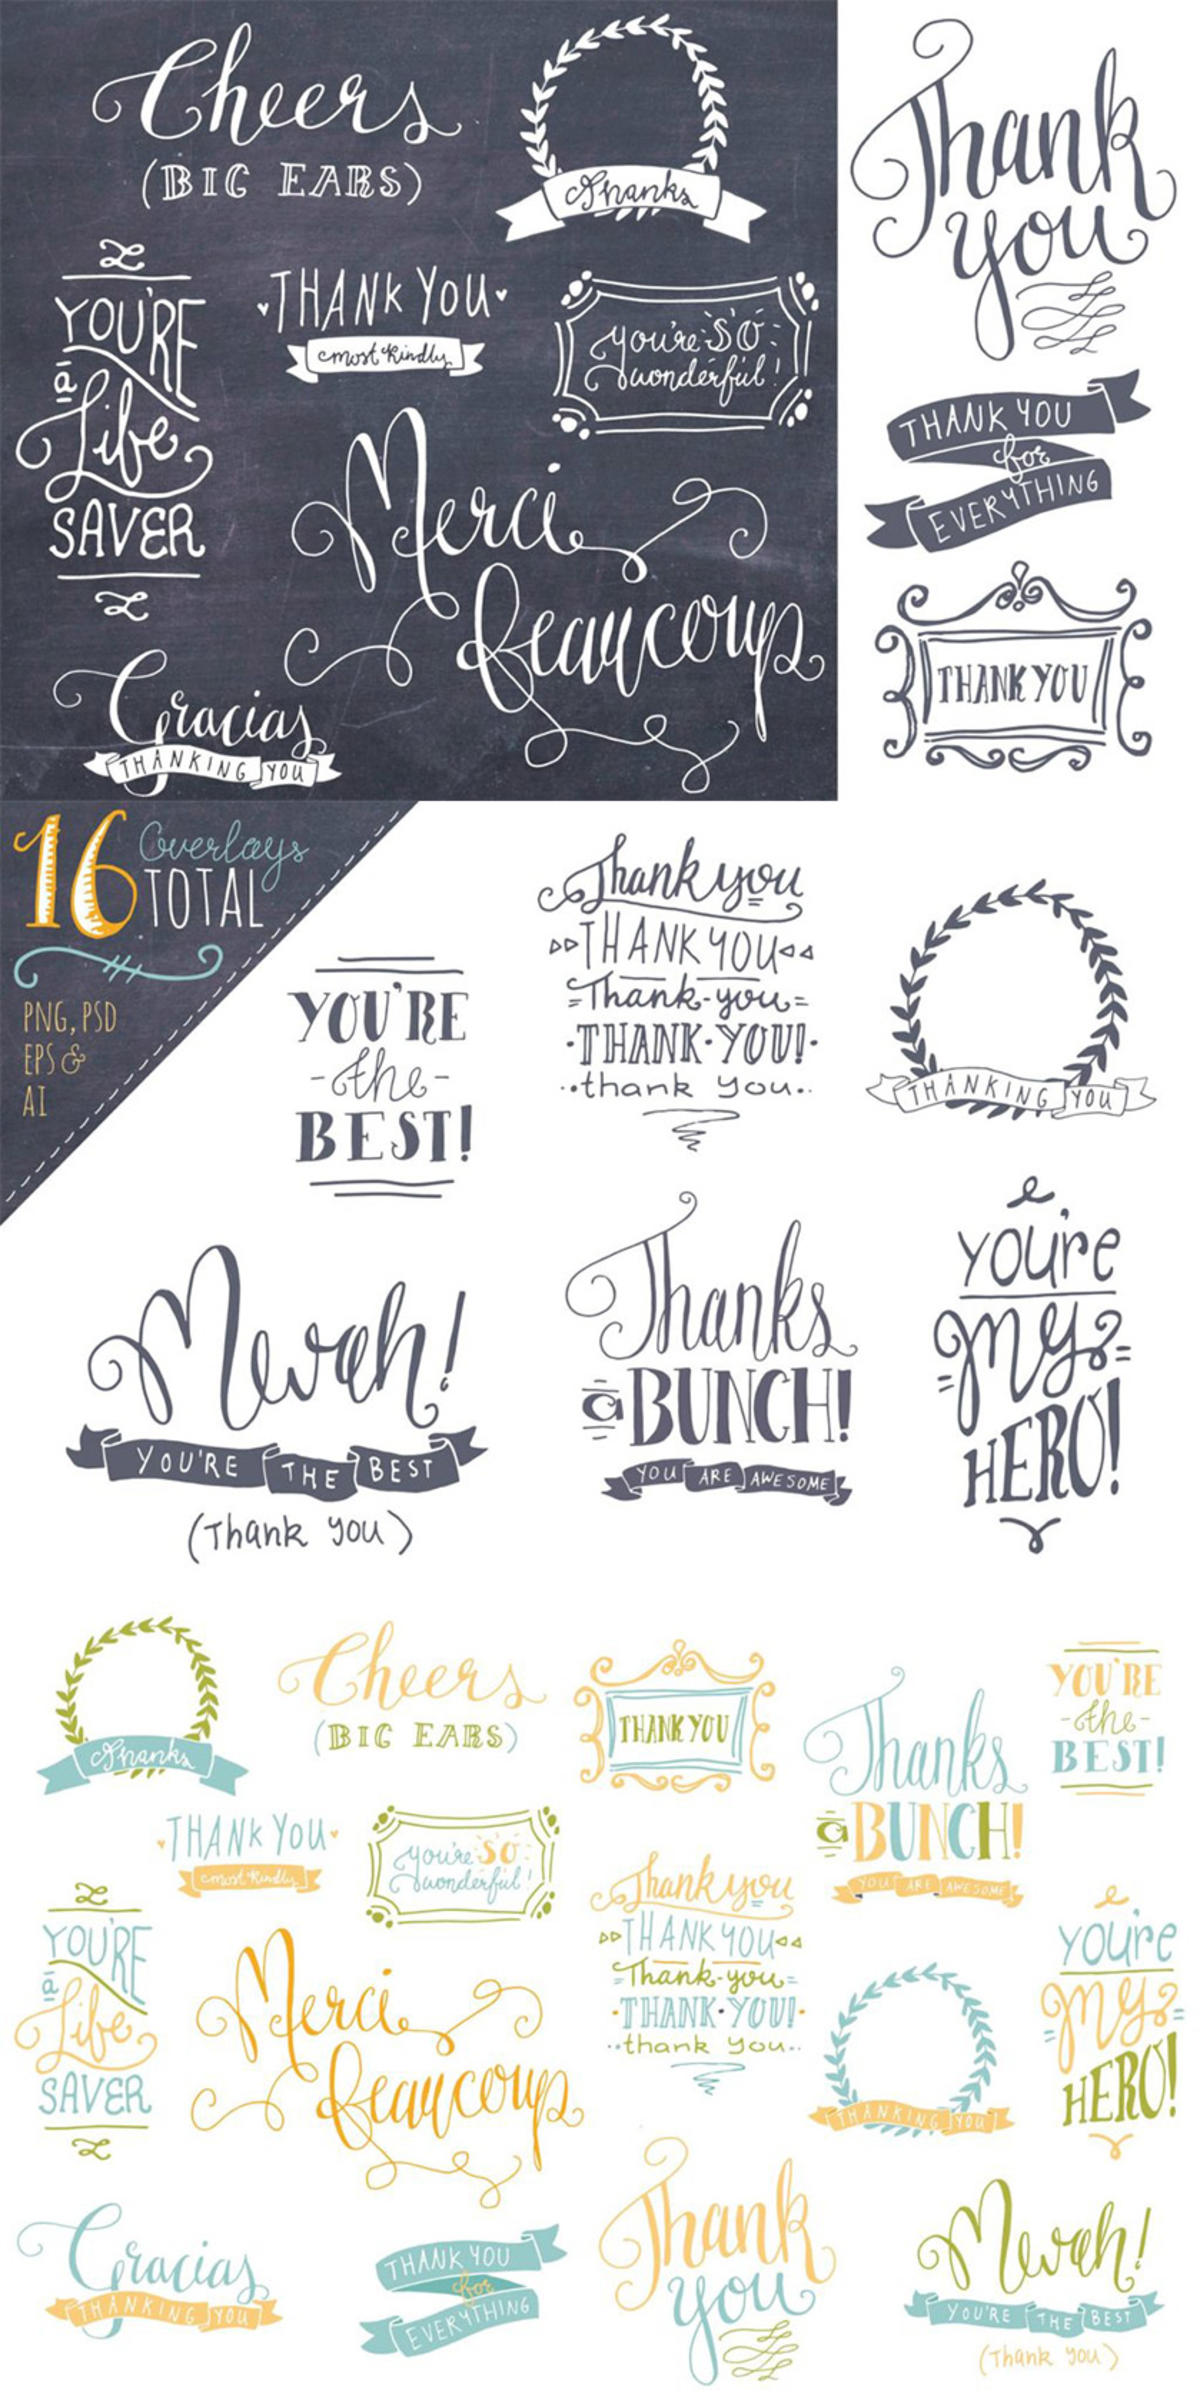 Cheers
(BIG EARS)
Thanks
Thank
you
YOU'RE
a
Life
SAVER
THANK YOU
most kindly
you're SO
wonderful!
Merci
Beaucoup
Gracias
THANKING YOU
THANK YOU
for
EVERYTHING
THANK YOU
16 Overlays
TOTAL
PNG, PSD
EPS &
AI
YOU'RE
-the-
BEST!
Thank you
THANK YOU
=Thank-you=
·THANK·YOU!·
··thank you..
THANKING YOU
Mwah!
YOU'RE THE BEST
(Thank you)
Thanks
a BUNCH!
YOU ARE AWESOME
you're
my
HERO!
Thanks
Cheers
(BIG EARS)
THANK YOU
Thanks
a BUNCH!
YOU ARE AWESOME
YOU'RE
-the-
BEST!
THANK YOU
most kindly
you're SO
wonderful!
YOU'RE
a
Life
SAVER
Merci
Beaucoup
Thank you
THANK YOU
=Thank-you=
·THANK·YOU!·
··thank you..
THANKING YOU
you're
my
HERO!
Gracias
THANKING YOU
THANK YOU
for
EVERYTHING
Thank
you
Mwah!
YOU'RE THE BEST
(Thank you)